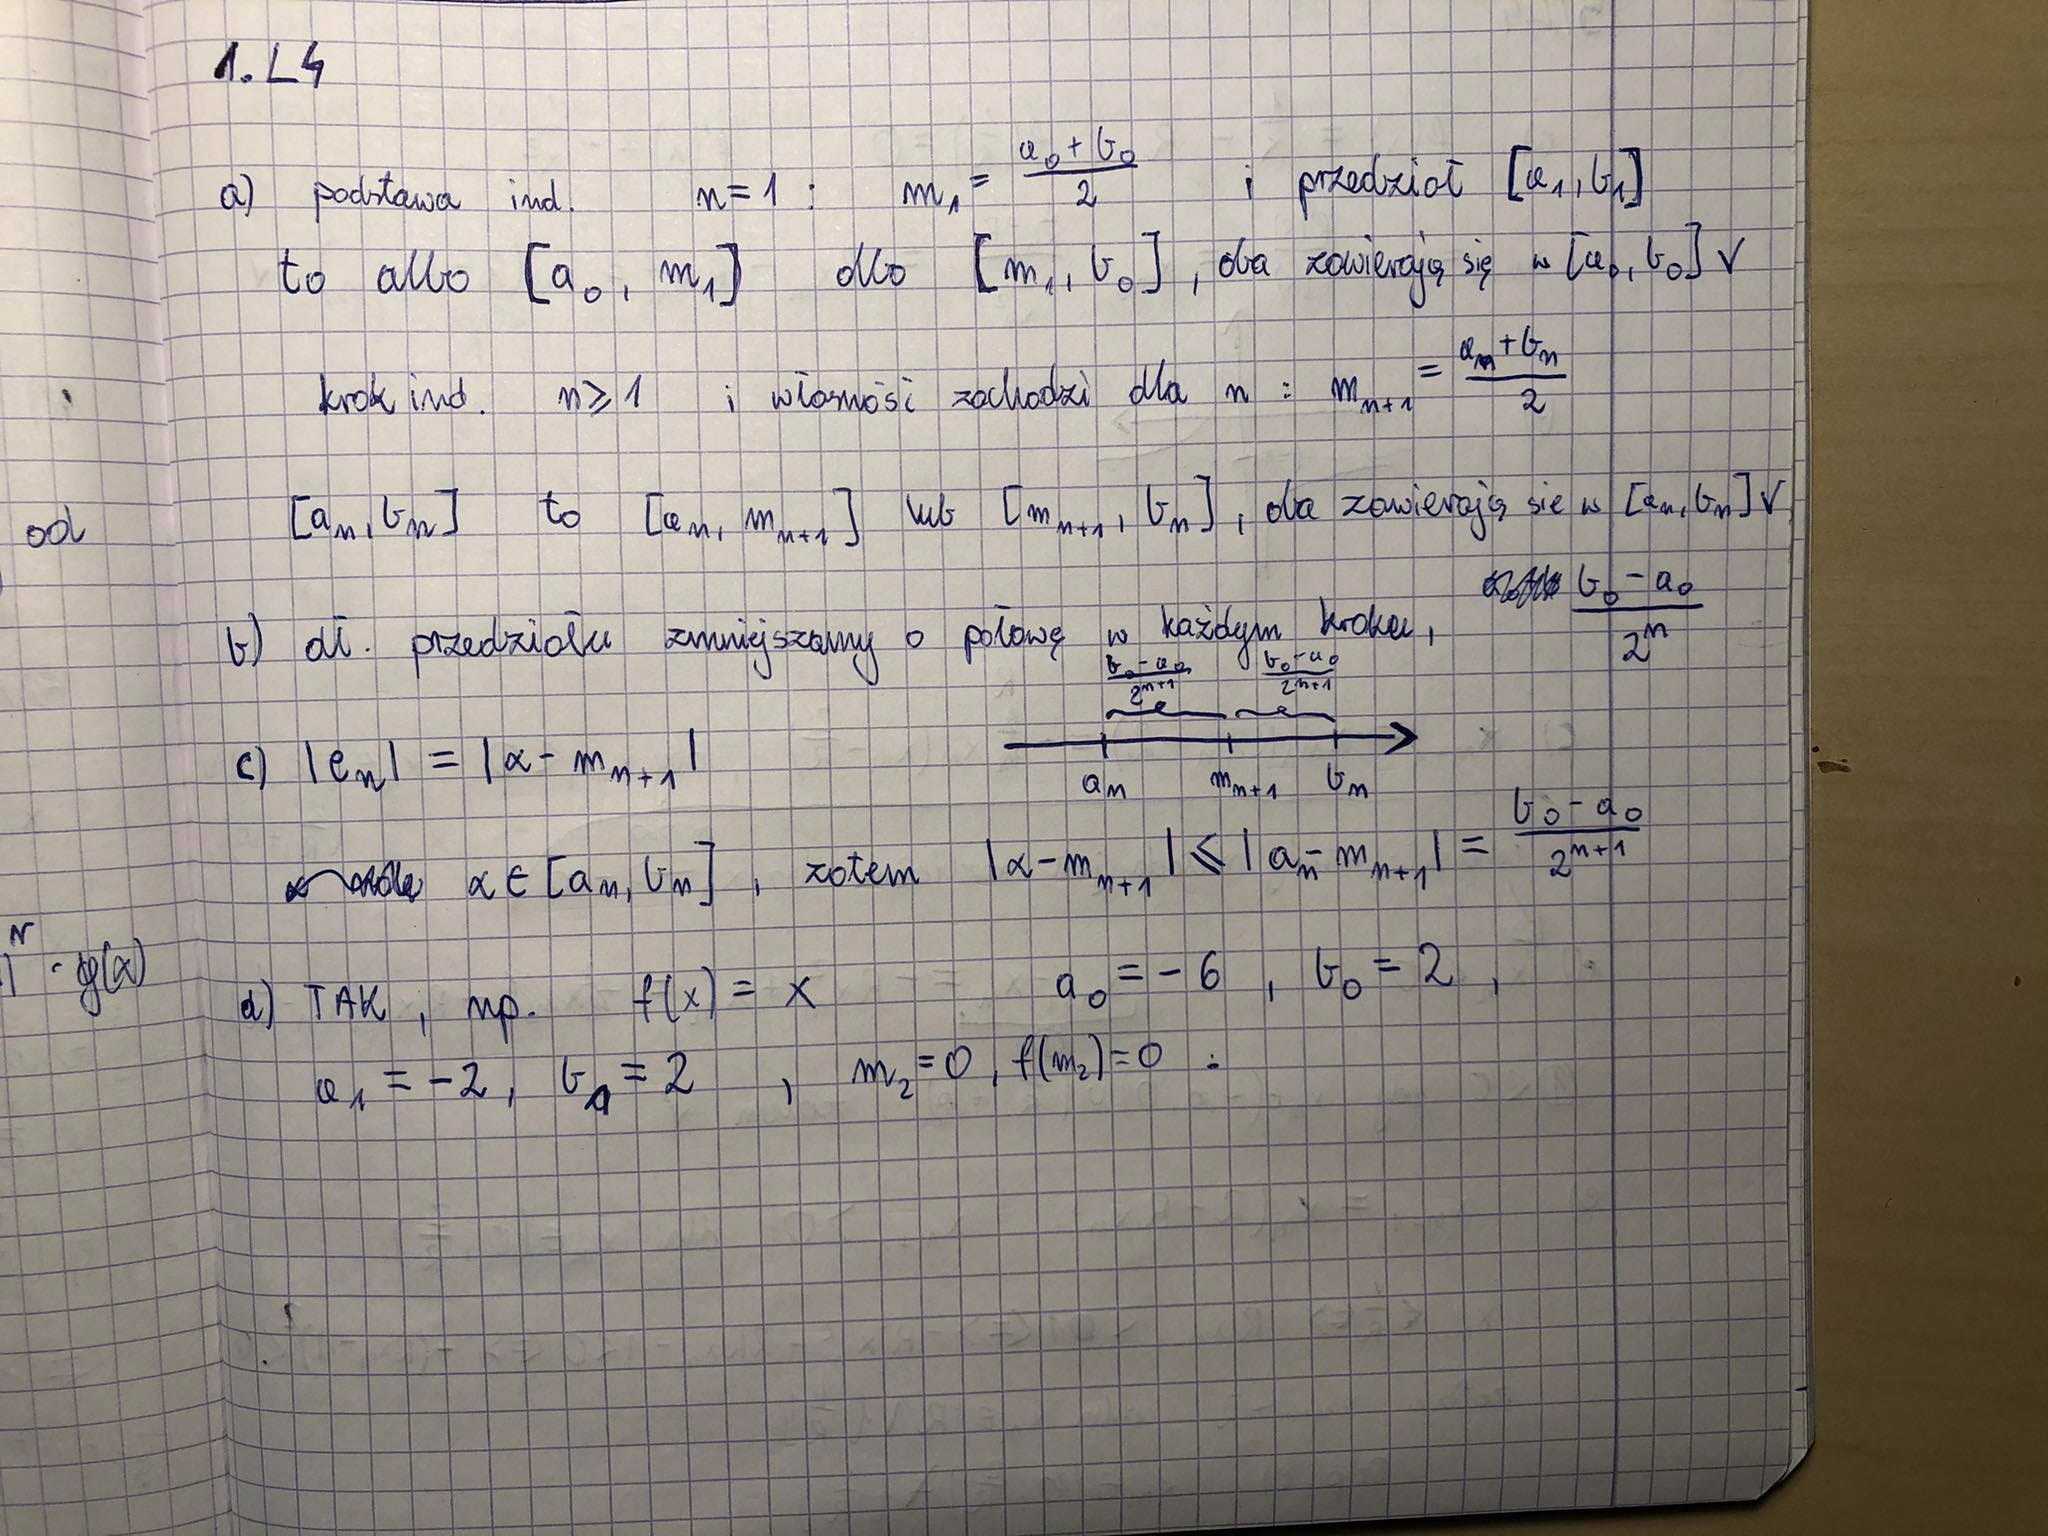 1. L4
a) podstawa ind. n = 1 : m₁ = (a₀ + b₀)/2 i przedział [a₁, b₁]
to albo [a₀, m₁] albo [m₁, b₀], oba zawierają się w [a₀, b₀] √
krok ind. n ≥ 1 i własność zachodzi dla n : mₙ₊₁ = (aₙ + bₙ)/2
od
[aₙ, bₙ] to [aₙ, mₙ₊₁] lub [mₙ₊₁, bₙ], oba zawierają się w [aₙ, bₙ] √
b) dł. przedziału zmniejszamy o połowę w każdym kroku, (b₀ - a₀)/2ⁿ
(b₀ - a₀)/2ⁿ⁺¹ (b₀ - a₀)/2ⁿ⁺¹
c) |eₙ| = |α - mₙ₊₁|
aₙ mₙ₊₁ bₙ
α ∈ [aₙ, bₙ], zatem |α - mₙ₊₁| ≤ |aₙ - mₙ₊₁| = (b₀ - a₀)/2ⁿ⁺¹
· g(x)
d) TAK, np. f(x) = x a₀ = -6, b₀ = 2,
a₁ = -2, b₁ = 2, m₂ = 0, f(m₂) = 0 :